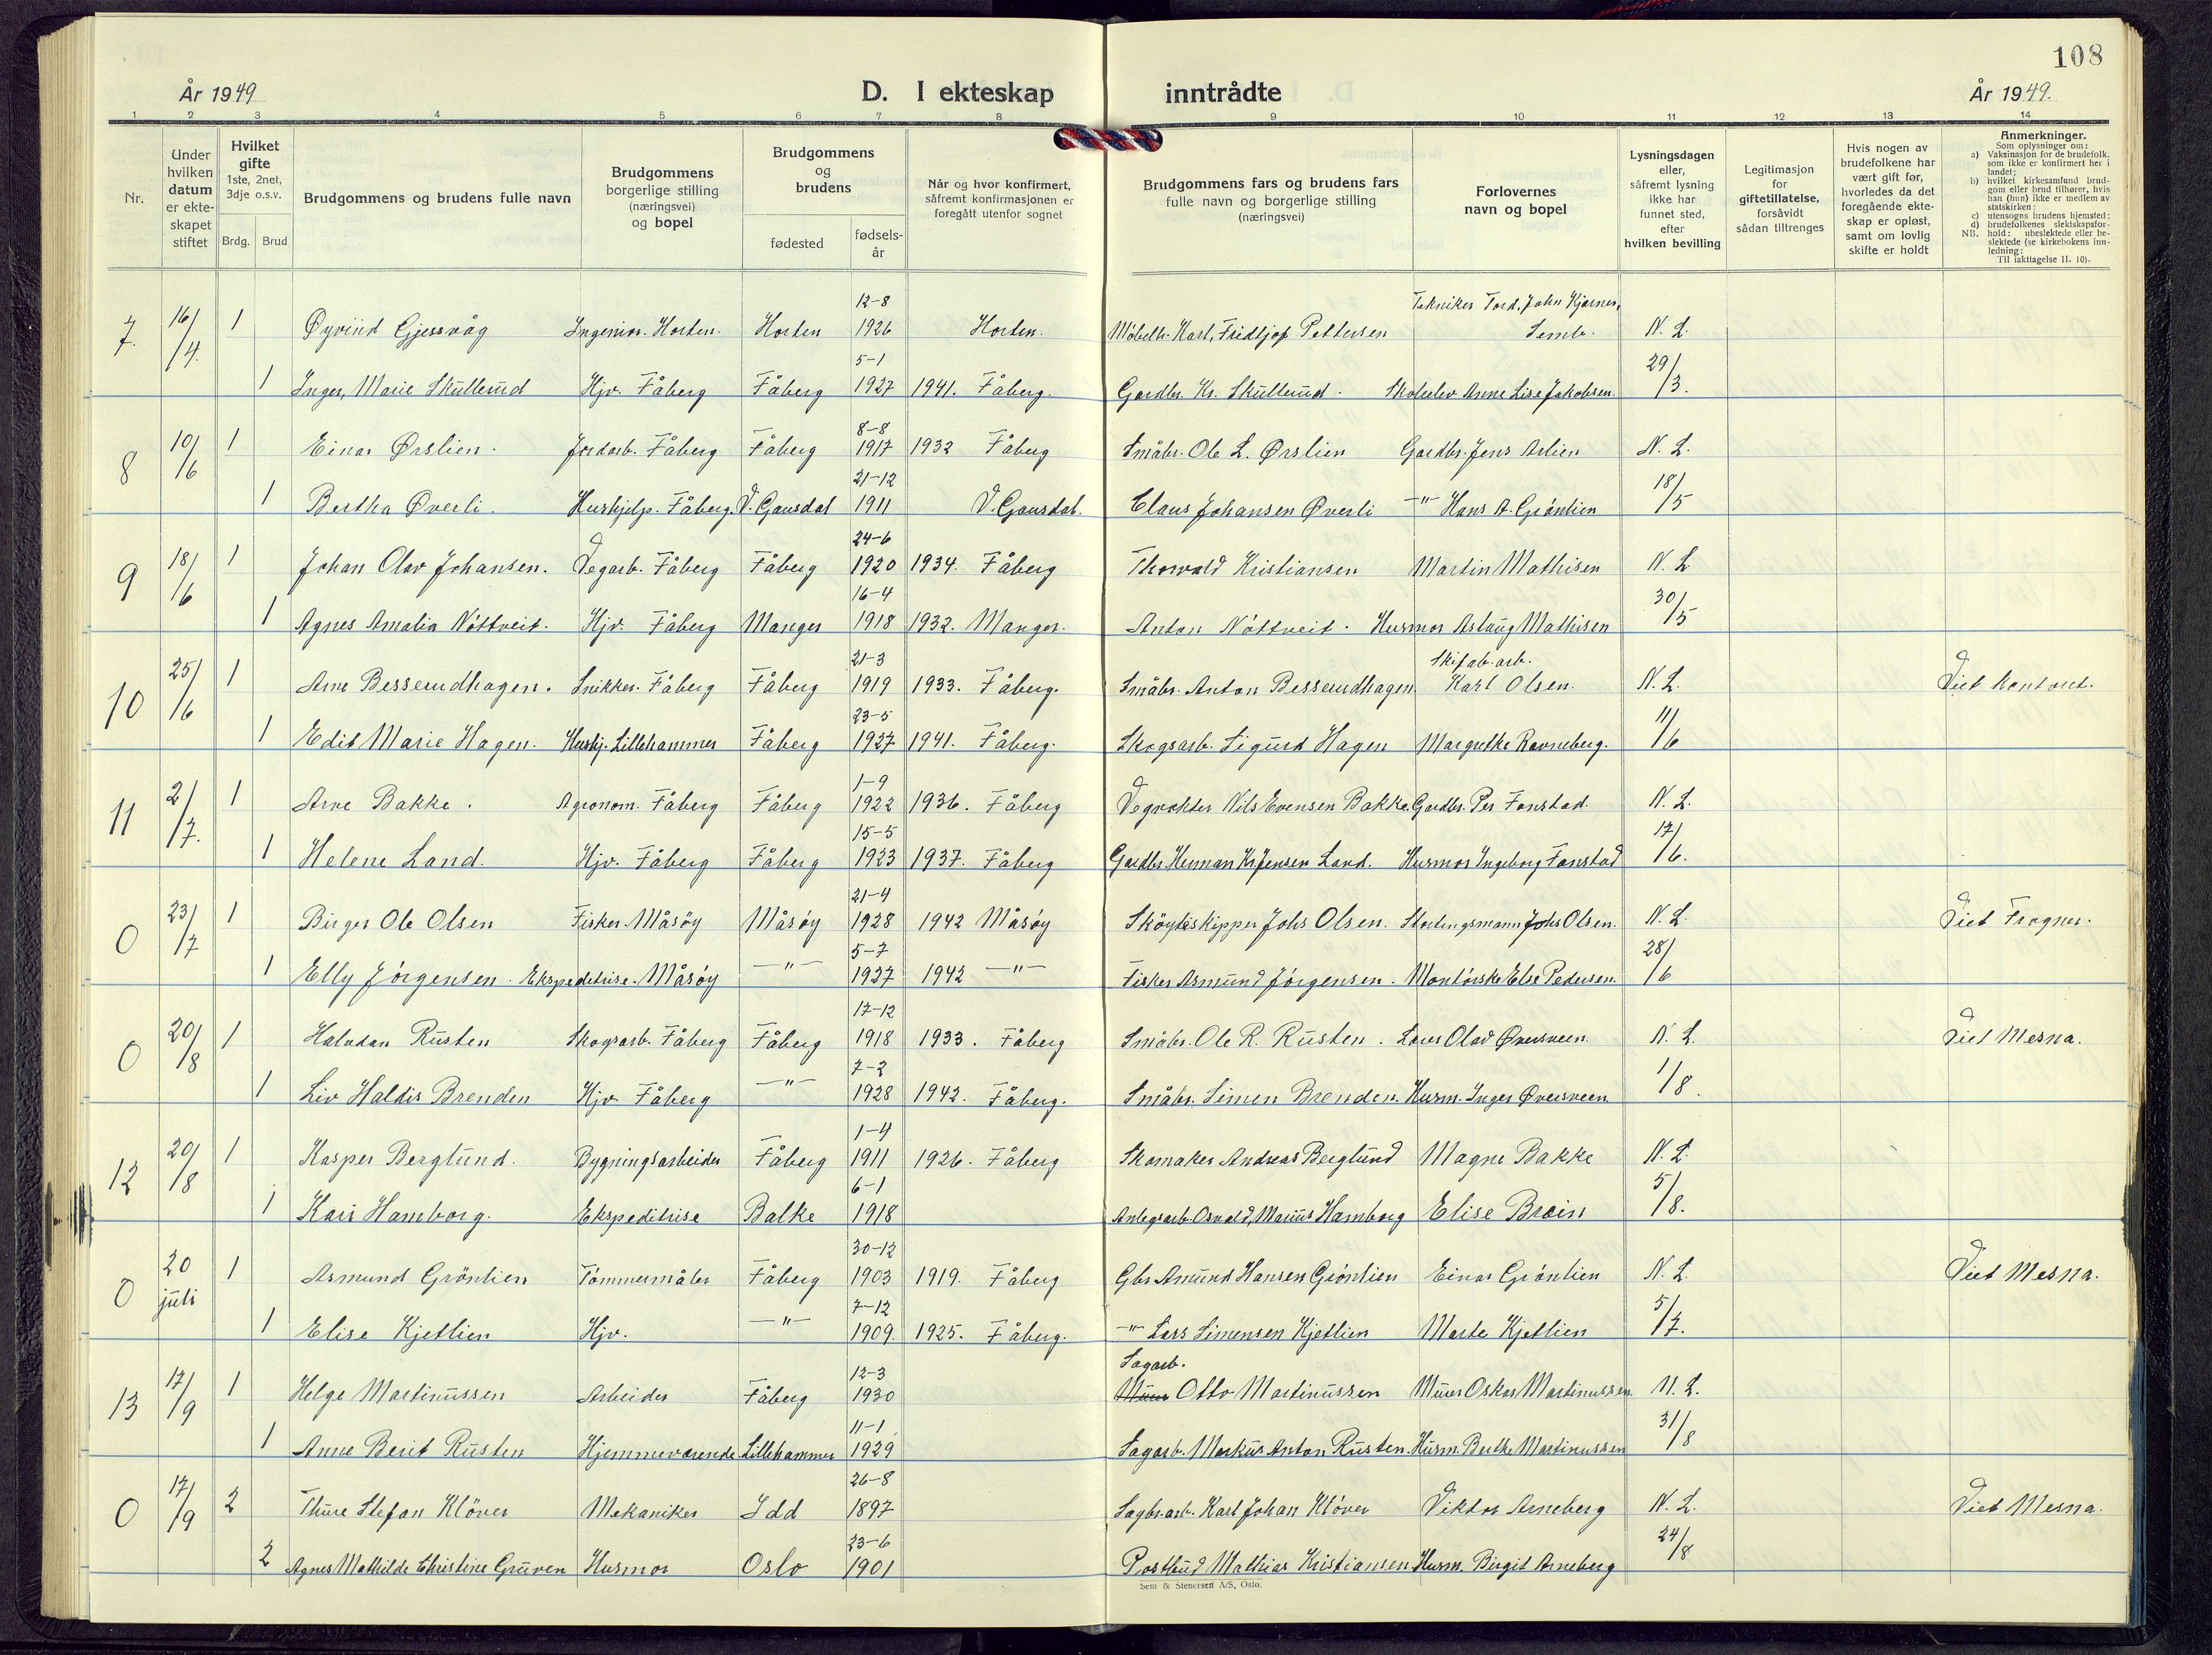 108
År 1949
D. I ekteskap inntrådte
År 1949.
1 2 3 4 5 6 7 8 9 10 11 12 13 14
Nr.
Under hvilken datum er ekteskapet stiftet
Hvilket gifte 1ste, 2net, 3dje o.s.v.
Brdg. Brud
Brudgommens og brudens fulle navn
Brudgommens borgerlige stilling (næringsvei) og bopel
Brudgommens og brudens
fødested
fødsels-år
Når og hvor konfirmert, såfremt konfirmasjonen er foregått utenfor sognet
Brudgommens fars og brudens fars fulle navn og borgerlige stilling (næringsvei)
Forlovernes navn og bopel
Lysningsdagen eller, såfremt lysning ikke har funnet sted, efter hvilken bevilling
Legitimasjon for giftetillatelse, forsåvidt sådan tiltrenges
Hvis nogen av brudefolkene har vært gift før, hvorledes da det foregående ekteskap er opløst, samt om lovlig skifte er holdt
Anmerkninger.
Som oplysninger om:
a) Vaksinasjon for de brudefolk, som ikke er konfirmert her i landet;
b) hvilket kirkesamfund brudgom eller brud tilhører, hvis han (hun) ikke er medlem av statskirken;
c) utensogns brudens hjemsted;
d) brudefolkenes slektskapsforhold: ubeslektede eller beslektede (se kirkebokens innledning:
NB. Til iakttagelse II. 10).
7. 16/4. 1 Øyvind Gjessvåg Ingeniør. Horten. Horten 12-8 1926 Horten. Møbelh. Karl, Fridtjof Pettersen Tekniker Tord, John Kjærnes, Semb. N. L.
1 Inger, Marie Skullerud Hjv. Fåberg Fåberg 5-1 1927 1941. Fåberg. Gardbr. Kr. Skullerud. Skoleelev Anne Lise Jakobsen. 29/3.
8 10/6 1 Einar Ørslien. Jordarb. Fåberg Fåberg 8-8 1917 1932 Fåberg Småbr. Ole L. Ørslien Gardbr. Jens Aslien N. L.
1 Bertha Øverli. Hushjelp. Fåberg. V. Gausdal 21-12 1911 V. Gausdal. Claus Johansen Øverli -"- Hans A. Grönlien 18/5
9 18/6 1 Johan Olav Johansen. Vegarb. Fåberg Fåberg 24-6 1920 1934. Fåberg Thorvald Kristiansen Martin Mathisen N. L
1 Agnes Amalia Nöttveit. Hjv. Fåberg Manger 16-4 1918 1932. Manger. Anton Nöttveit. Husmor Aslaug Mathisen 30/5
10 25/6 1 Arne Besserudhagen. Snikker. Fåberg Fåberg 21-3 1919 1933. Fåberg. Småbr. Anton Besserudhagen Skifab. arb. Karl Olsen. N. L. Viet kontort.
1 Edit Marie Hagen. Hushj. Lillehammer Fåberg 23-5 1927 1941. Fåberg. Skogsarb. Sigurd Hagen Margrethe Ravneberg. 11/6
11 2/7. 1 Arve Bakke. Agronom. Fåberg Fåberg 1-9 1922 1936. Fåberg Vegvokter Nils Evensen Bakke Gardbr. Per Fonstad. N. L.
1 Helene Land. Hjv. Fåberg Fåberg 15-5 1923 1937. Fåberg Gardbr. Herman Kr. Jensen Land. Husmor Ingeborg Fonstad 17/6.
0 23/7 1 Birger Ole Olsen Fisker. Måsøy Måsøy 21-4 1928 1942 Måsøy Sköyteskipper Johs Olsen. Stortingsmann Johs Olsen. N. L. Viet Frogner.
1 Elly Jörgensen. Ekspeditrise. Måsøy -"- 5-7 1927 1942 -"- Fisker Asmund Jörgensen. Montörske Else Pedersen. 28/6
0 20/8 1 Halvdan Rusten Skogsarb. Fåberg Fåberg 17-12 1918 1933. Fåberg Småbr. Ole R. Rusten. Olav Øversveen. N. L. Viet Mesna.
1 Liv Haldis Brenden Hjv Fåberg -"- 7-2 1928 1942. Fåberg. Småbr. Simen Brenden. Husm. Inger Øversveen 1/8.
12 20/8 1 Kasper Berglund. Bygningsarbeider Fåberg 1-4 1911 1926. Fåberg Skomaker Andreas Berglund Magne Bakke N. L.
1 Kari Hamborg. Ekspeditrise Balke 6-1 1918 Anlegsarb. Osvald, Marius Hamborg Elise Bræin 5/8.
0 20 juli 1 Asmund Grönlien Tömmermåler Fåberg 30-12 1903 1919. Fåberg Gbr Amund Hansen Grönlien Einar Grönlien N. L. Viet Mesna.
1 Elise Kjetlien Hjv. -"- 7-12 1909. 1925. Fåberg. -"- Lars Simensen Kjetlien Marte Kjetlien 5/7.
13 17/9 1 Helge Martinussen Arbeider Fåberg 12-3 1930 Sagarb. Murer Otto Martinussen Murer Oskar Martinussen. N. L.
1 Anne Berit Rusten Hjemmeværende Lillehammer 11-1 1929 Sagarb. Markus Anton Rusten. Husm. Berthe Martinussen 31/8
0 17/9 2 Thure Stefan Klöver Mekaniker Idd 26-8 1897 Sagbr. arb. Karl Johan Klöver Viktor Arneberg N. L. Viet Mesna.
2 Agnes Mathilde Christine Gruven Husmor Oslo 23-6 1901 Postbud Mathias Kristiansen Husm. Birgit Arneberg 24/8
Sem & Stenersen A/S, Oslo.